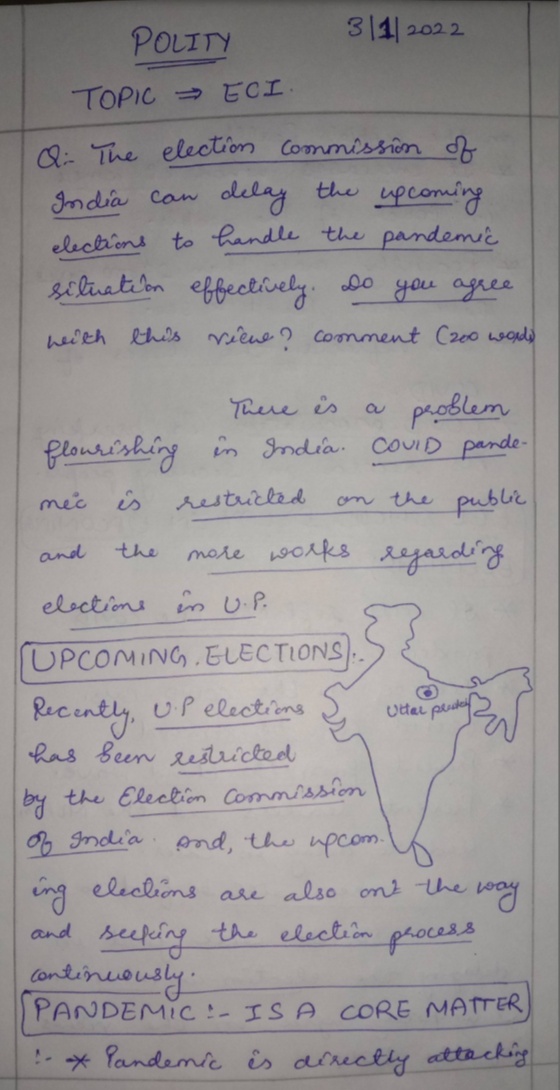 POLITY
3|1|2022
TOPIC ⇒ ECI.
Q:- The election commission of
India can delay the upcoming
elections to handle the pandemic
situation effectively. Do you agree
with this view? comment (200 words)
There is a problem
flourishing in India. COVID pande-
mic is restricted on the public
and the more works regarding
elections in U.P.
UPCOMING ELECTIONS:-
Recently, U.P elections
has been restricted
by the Election Commission
of India. And, the upcom-
ing elections are also ont the way
and seeking the election process
continuously.
Uttar pradesh
PANDEMIC :- IS A CORE MATTER
:- * Pandemic is directly attacking